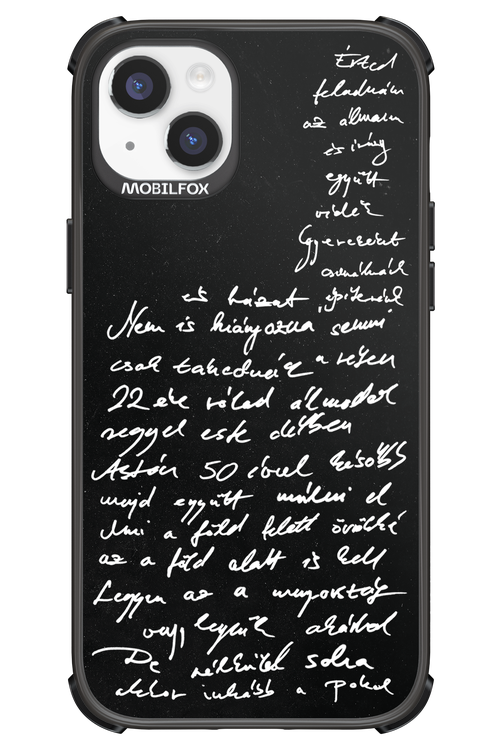 MOBILFOX
Érted
feladnám
az álmaim
és irány
együtt
vidék
Gyereket
csinálnánk
és házat építenénk
Nem is hiányozna semmi
csak takednék a
22 éve rólad álmodok
reggel este délben
Aztán 50 évvel később
majd együtt múlni el
Ami a föld felett örökké
az a föld alatt is kell
Legyen az a mennyország
vagy legyünk akárhol
De nélküled soha
akkor inkább a Pokol